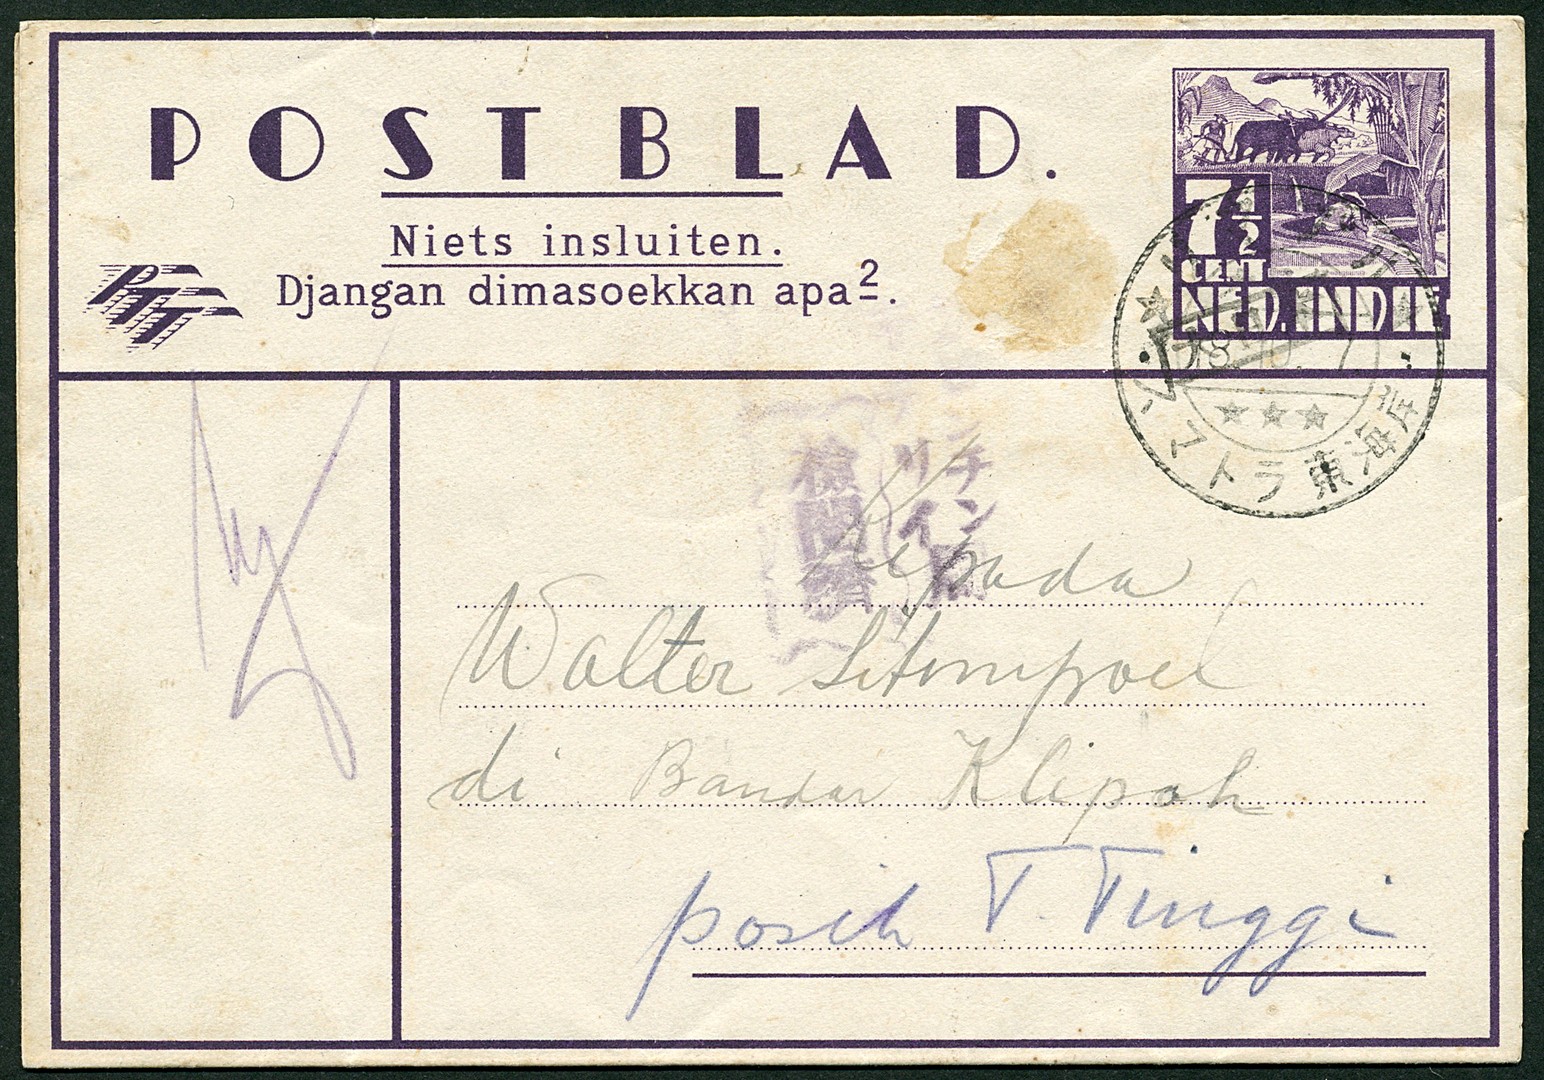 POSTBLAD.
Niets insluiten.
Djangan dimasoekkan apa2.
PTT
7 1/2
CENT
NED. INDIE
スマトラ東海岸
18.10. 7
検閲済
チンギ
kepada
Walter Sitompoel
di Bandar Klipah
posih T. Tinggi